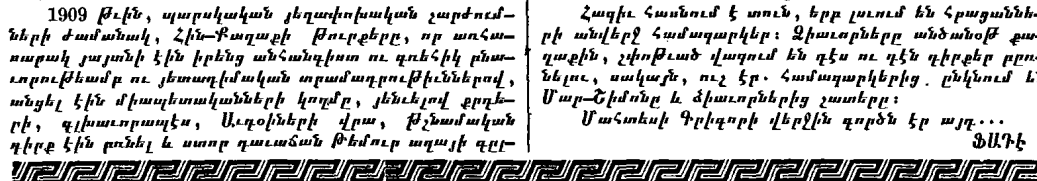 1909 թւին, պարսկական յեղափոխական շարժում-
ների ժամանակ, Հին-Քաղաքի Թուրքերը, որ առհա-
սարակ յայտնի էին իրենց անհանգիստ ու գռեհիկ բնա-
ւորութեամբ ու յետադիմական տրամադրութիւններով,
անցել էին միապետականների կողմը, յենւելով քրդե-
րի, գլխաւորապէս, Աւդօիների վրա, թշնամական
դիրք էին բռնել և ստոր դաւաճան Թեմուր աղայի գըլ-
Հազիւ հասնում է տուն, երբ լսւում են հրացաննե-
րի անվերջ համազարկեր: Ձիաւորները անծանօթ քա-
ղաքին, շփոթւած վազում են դէս ու դէն դիրքեր բըռ-
նելու, սակայն, ուշ էր. համազարկերից ընկնում են
Մար-Շիմոնը և ձիաւորներից շատերը:
Մահտեսի Գրիգորի վերջին գործն էր այդ...
ՖԱԴԷ